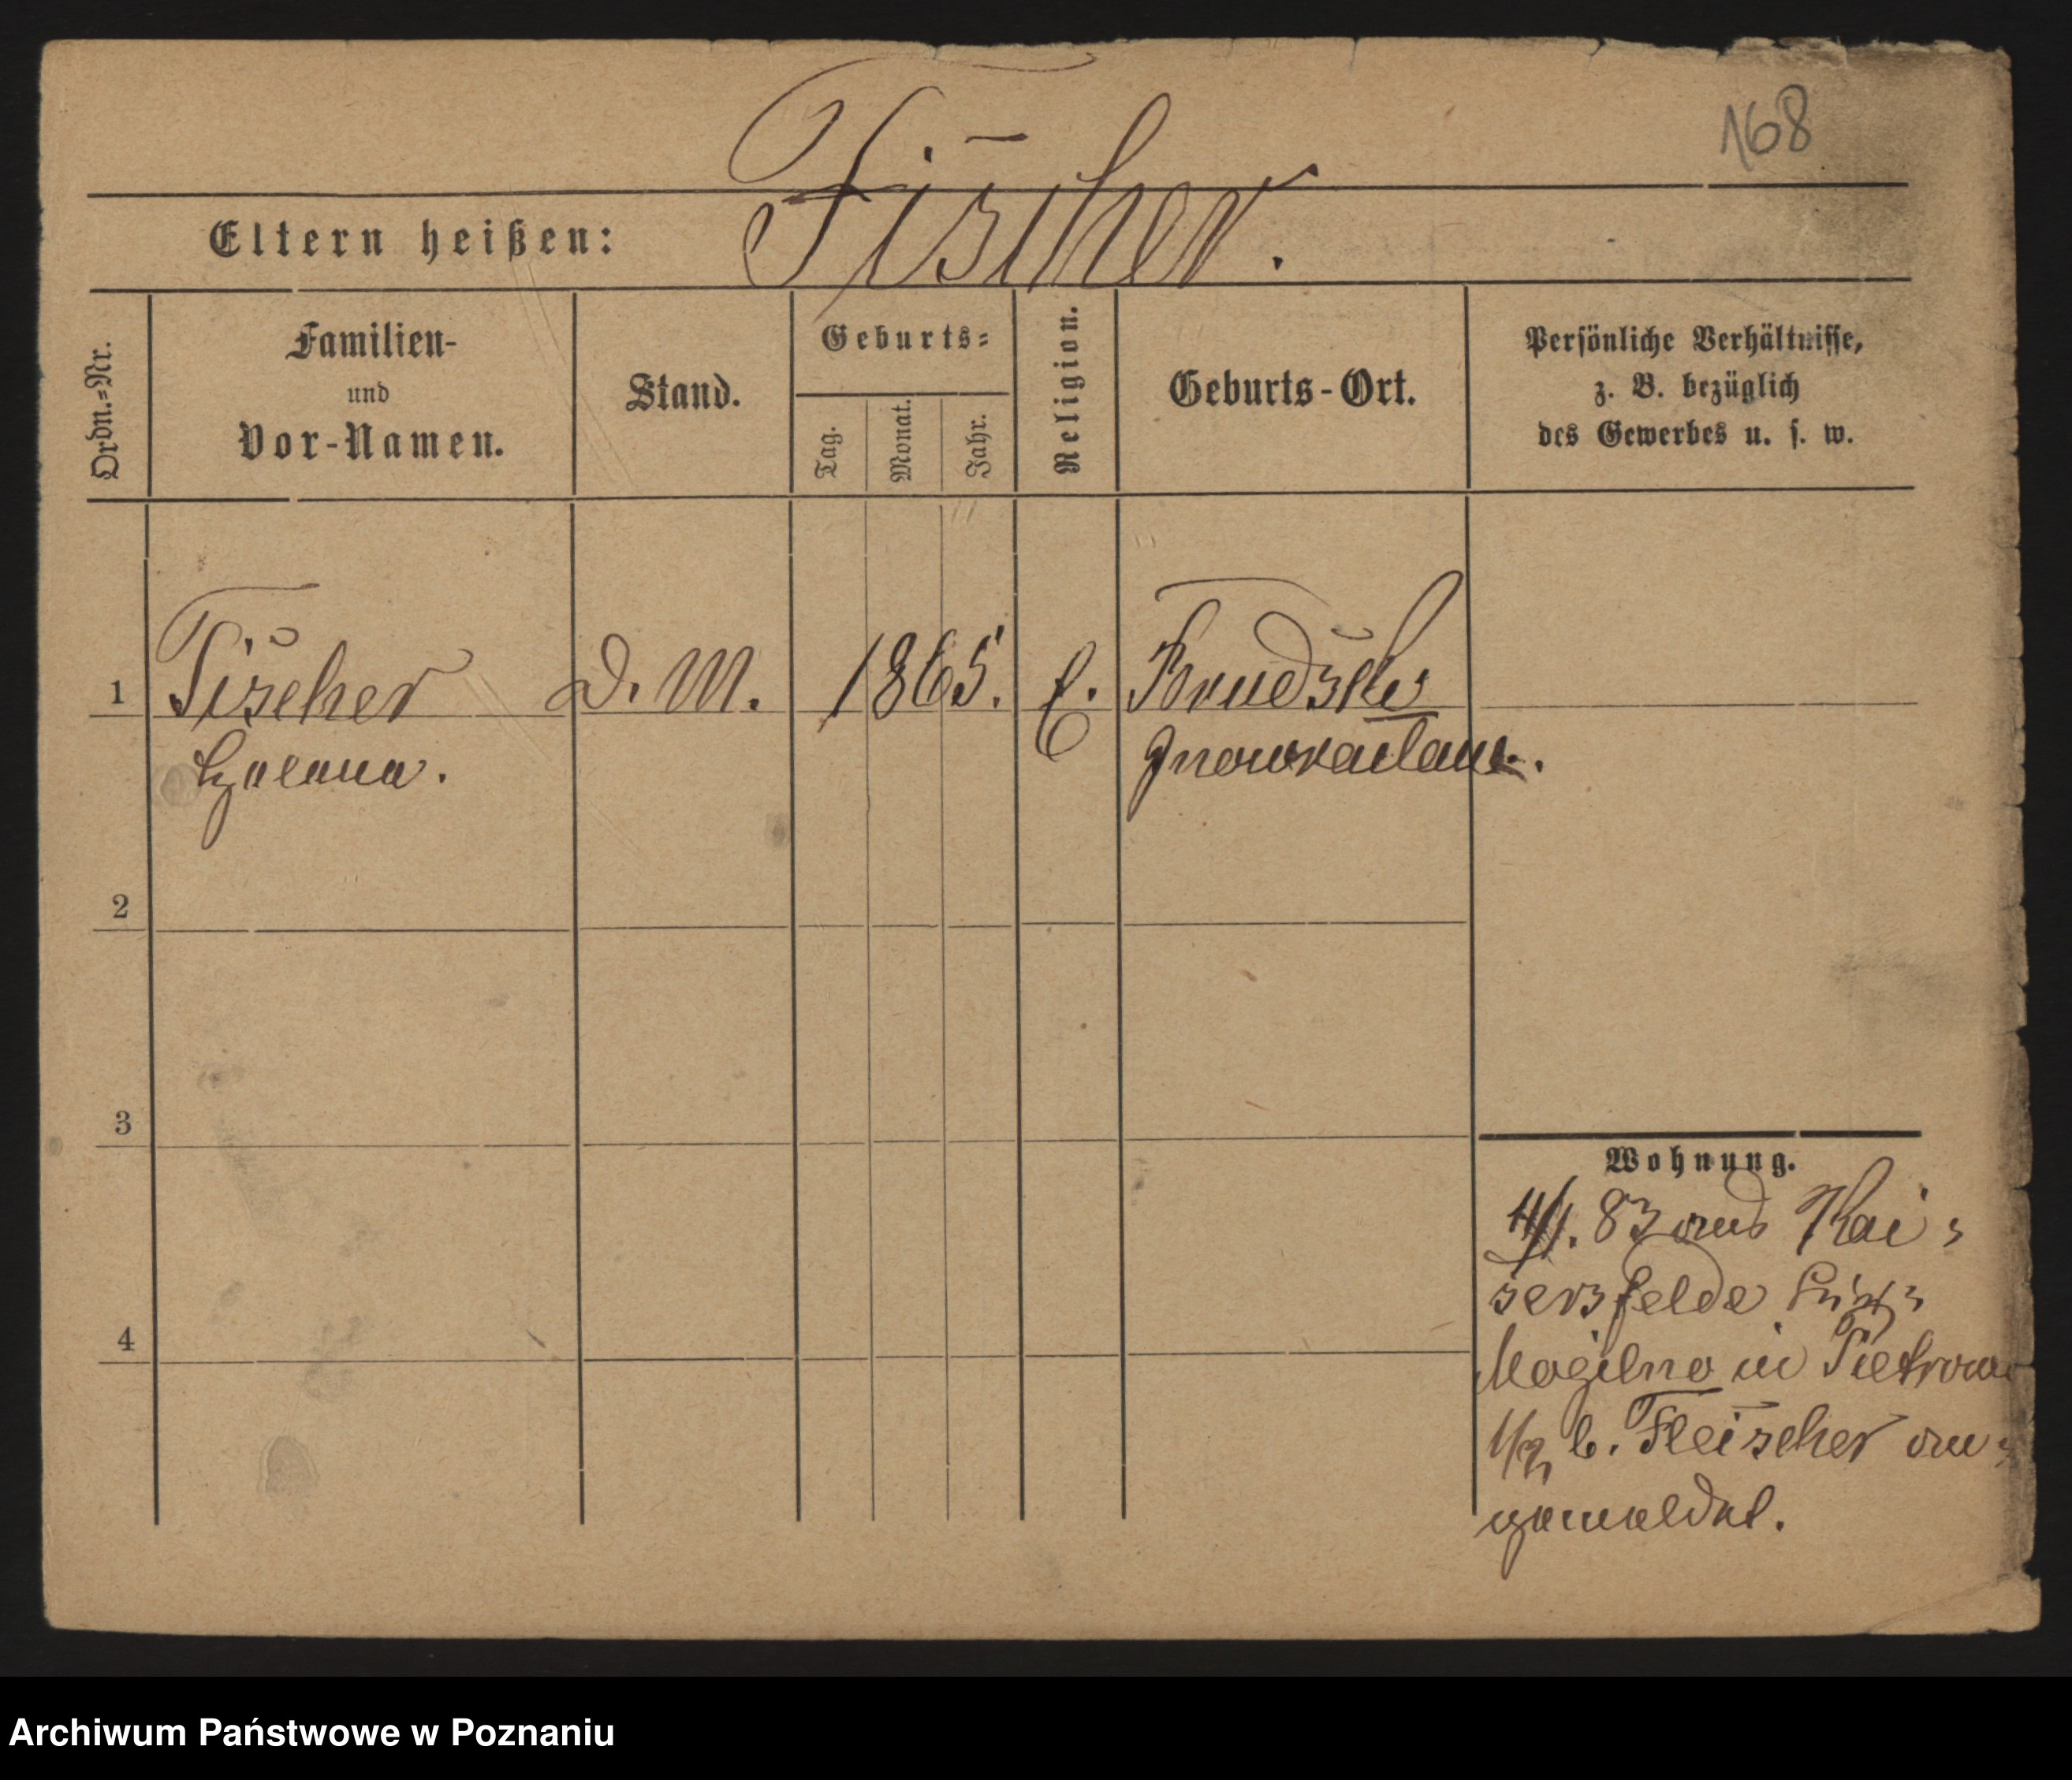 168
Fischer.
Eltern heißen:
Ordn.=Nr.
Familien-
und
Vor-Namen.
Stand.
Geburts=
Tag.
Monat.
Jahr.
Religion.
Geburts-Ort.
Persönliche Verhältnisse,
z. B. bezüglich
des Gewerbes u. s. w.
1
Fischer
D. M.
1865.
E.
Inowraclaw.
2
3
Wohnung.
83 aus Kai=
sersfelde
4
Mogilno in
b. Fleischer an=
gemeldet.
Archiwum Państwowe w Poznaniu